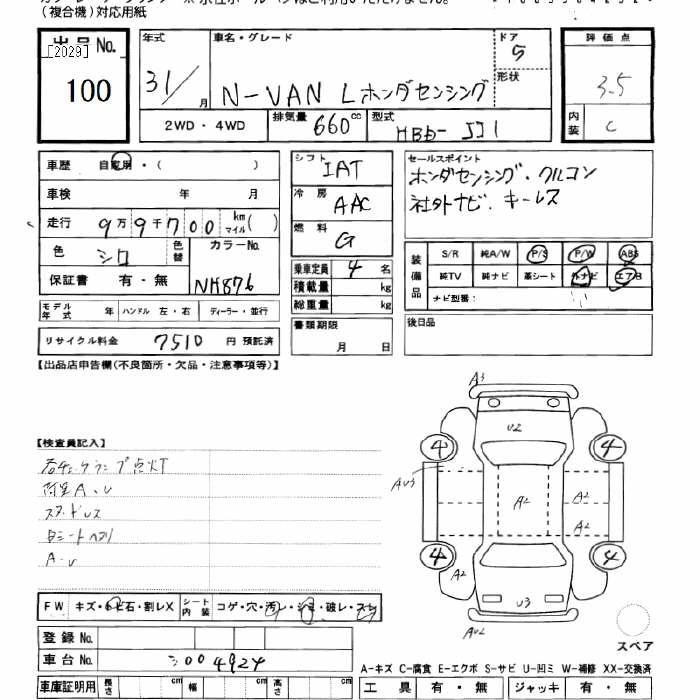 (複合機)対応用紙
出品 No.
[2029]
100
年式 31/ 月
車名・グレード N-VAN L ホンダセンシング
ドア 5
形状
評価点 3.5
内装 C
2WD・4WD
排気量 660 cc
型式 HBD- JJ1
車歴 自家用・( )
車検 年 月
走行 9万9千700 km マイル ( )
色 シロ 色替
カラーNo. NH876
保証書 有・無
モデル年式 年 ハンドル 左・右 ディーラー・並行
リサイクル料金 7510 円 預託済
シフト IAT
冷房 AAC
燃料 G
乗車定員 4 名
積載量 kg
総重量 kg
書類期限 月 日
セールスポイント
ホンダセンシング、クルコン
社外ナビ、キーレス
装備品
S/R 純A/W P/S P/W ABS
純TV 純ナビ 革シート 外ナビ エアB
ナビ型番:
後日品
【出品店申告欄(不良箇所・欠品・注意事項等)】
【検査員記入】
各チェックランプ点灯
A、U
スタッドレス
シート
A、U
FW キズ・トビ石・割レX
シート内装 コゲ・穴・汚レ・シミ・破レ・スレ
登録 No.
車台 No. 2004924
車庫証明用 長さ cm 幅 cm 高さ cm
A3
U2
4 4
AU3
A2
A2
A2
4 4
A2
U3
AU2
スペア
A-キズ C-腐食 E-エクボ S-サビ U-凹ミ W-補修 XX-交換済
工具 有・無 ジャッキ 有・無